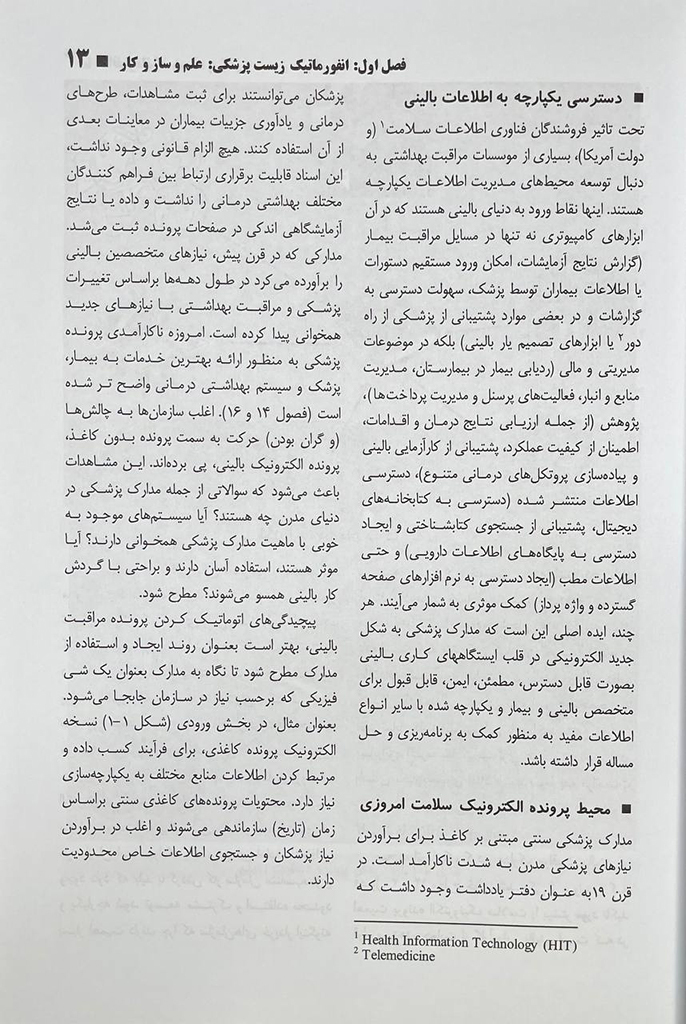 فصل اول: انفورماتیک زیست پزشکی: علم و ساز و کار ■ ۱۳
■ دسترسی یکپارچه به اطلاعات بالینی
تحت تاثیر فروشندگان فناوری اطلاعات سلامت۱ (و
دولت آمریکا)، بسیاری از موسسات مراقبت بهداشتی به
دنبال توسعه محیط‌های مدیریت اطلاعات یکپارچه
هستند. اینها نقاط ورود به دنیای بالینی هستند که در آن
ابزارهای کامپیوتری نه تنها در مسایل مراقبت بیمار
(گزارش نتایج آزمایشات، امکان ورود مستقیم دستورات
یا اطلاعات بیماران توسط پزشک، سهولت دسترسی به
گزارشات و در بعضی موارد پشتیبانی از پزشکی از راه
دور۲ یا ابزارهای تصمیم یار بالینی) بلکه در موضوعات
مدیریتی و مالی (ردیابی بیمار در بیمارستان، مدیریت
منابع و انبار، فعالیت‌های پرسنل و مدیریت پرداخت‌ها)،
پژوهش (از جمله ارزیابی نتایج درمان و اقدامات،
اطمینان از کیفیت عملکرد، پشتیبانی از کارآزمایی بالینی
و پیاده‌سازی پروتکل‌های درمانی متنوع)، دسترسی
اطلاعات منتشر شده (دسترسی به کتابخانه‌های
دیجیتال، پشتیبانی از جستجوی کتابشناختی و ایجاد
دسترسی به پایگاه‌های اطلاعات دارویی) و حتی
اطلاعات مطب (ایجاد دسترسی به نرم افزارهای صفحه
گسترده و واژه پرداز) کمک موثری به شمار می‌آیند. هر
چند، ایده اصلی این است که مدارک پزشکی به شکل
جدید الکترونیکی در قلب ایستگاههای کاری بالینی
بصورت قابل دسترس، مطمئن، ایمن، قابل قبول برای
متخصص بالینی و بیمار و یکپارچه شده با سایر انواع
اطلاعات مفید به منظور کمک به برنامه‌ریزی و حل
مساله قرار داشته باشد.
■ محیط پرونده الکترونیک سلامت امروزی
مدارک پزشکی سنتی مبتنی بر کاغذ برای برآوردن
نیازهای پزشکی مدرن به شدت ناکارآمد است. در
قرن ۱۹به عنوان دفتر یادداشت وجود داشت که
پزشکان می‌توانستند برای ثبت مشاهدات، طرح‌های
درمانی و یادآوری جزییات بیماران در معاینات بعدی
از آن استفاده کنند. هیچ الزام قانونی وجود نداشت،
این اسناد قابلیت برقراری ارتباط بین فراهم کنندگان
مختلف بهداشتی درمانی را نداشت و داده یا نتایج
آزمایشگاهی اندکی در صفحات پرونده ثبت می‌شد.
مدارکی که در قرن پیش، نیازهای متخصصین بالینی
را برآورده می‌کرد در طول دهه‌ها براساس تغییرات
پزشکی و مراقبت بهداشتی با نیازهای جدید
همخوانی پیدا کرده است. امروزه ناکارآمدی پرونده
پزشکی به منظور ارائه بهترین خدمات به بیمار،
پزشک و سیستم بهداشتی درمانی واضح تر شده
است (فصول ۱۴ و ۱۶). اغلب سازمان‌ها به چالش‌ها
(و گران بودن) حرکت به سمت پرونده بدون کاغذ،
پرونده الکترونیک بالینی، پی برده‌اند. این مشاهدات
باعث می‌شود که سوالاتی از جمله مدارک پزشکی در
دنیای مدرن چه هستند؟ آیا سیستم‌های موجود به
خوبی با ماهیت مدارک پزشکی همخوانی دارند؟ آیا
موثر هستند، استفاده آسان دارند و براحتی با گردش
کار بالینی همسو می‌شوند؟ مطرح شود.
پیچیدگی‌های اتوماتیک کردن پرونده مراقبت
بالینی، بهتر است بعنوان روند ایجاد و استفاده از
مدارک مطرح شود تا نگاه به مدارک بعنوان یک شی
فیزیکی که برحسب نیاز در سازمان جابجا می‌شود.
بعنوان مثال، در بخش ورودی (شکل ۱-۱) نسخه
الکترونیک پرونده کاغذی، برای فرآیند کسب داده و
مرتبط کردن اطلاعات منابع مختلف به یکپارچه‌سازی
نیاز دارد. محتویات پرونده‌های کاغذی سنتی براساس
زمان (تاریخ) سازماندهی می‌شوند و اغلب در برآوردن
نیاز پزشکان و جستجوی اطلاعات خاص محدودیت
دارند.
1 Health Information Technology (HIT)
2 Telemedicine